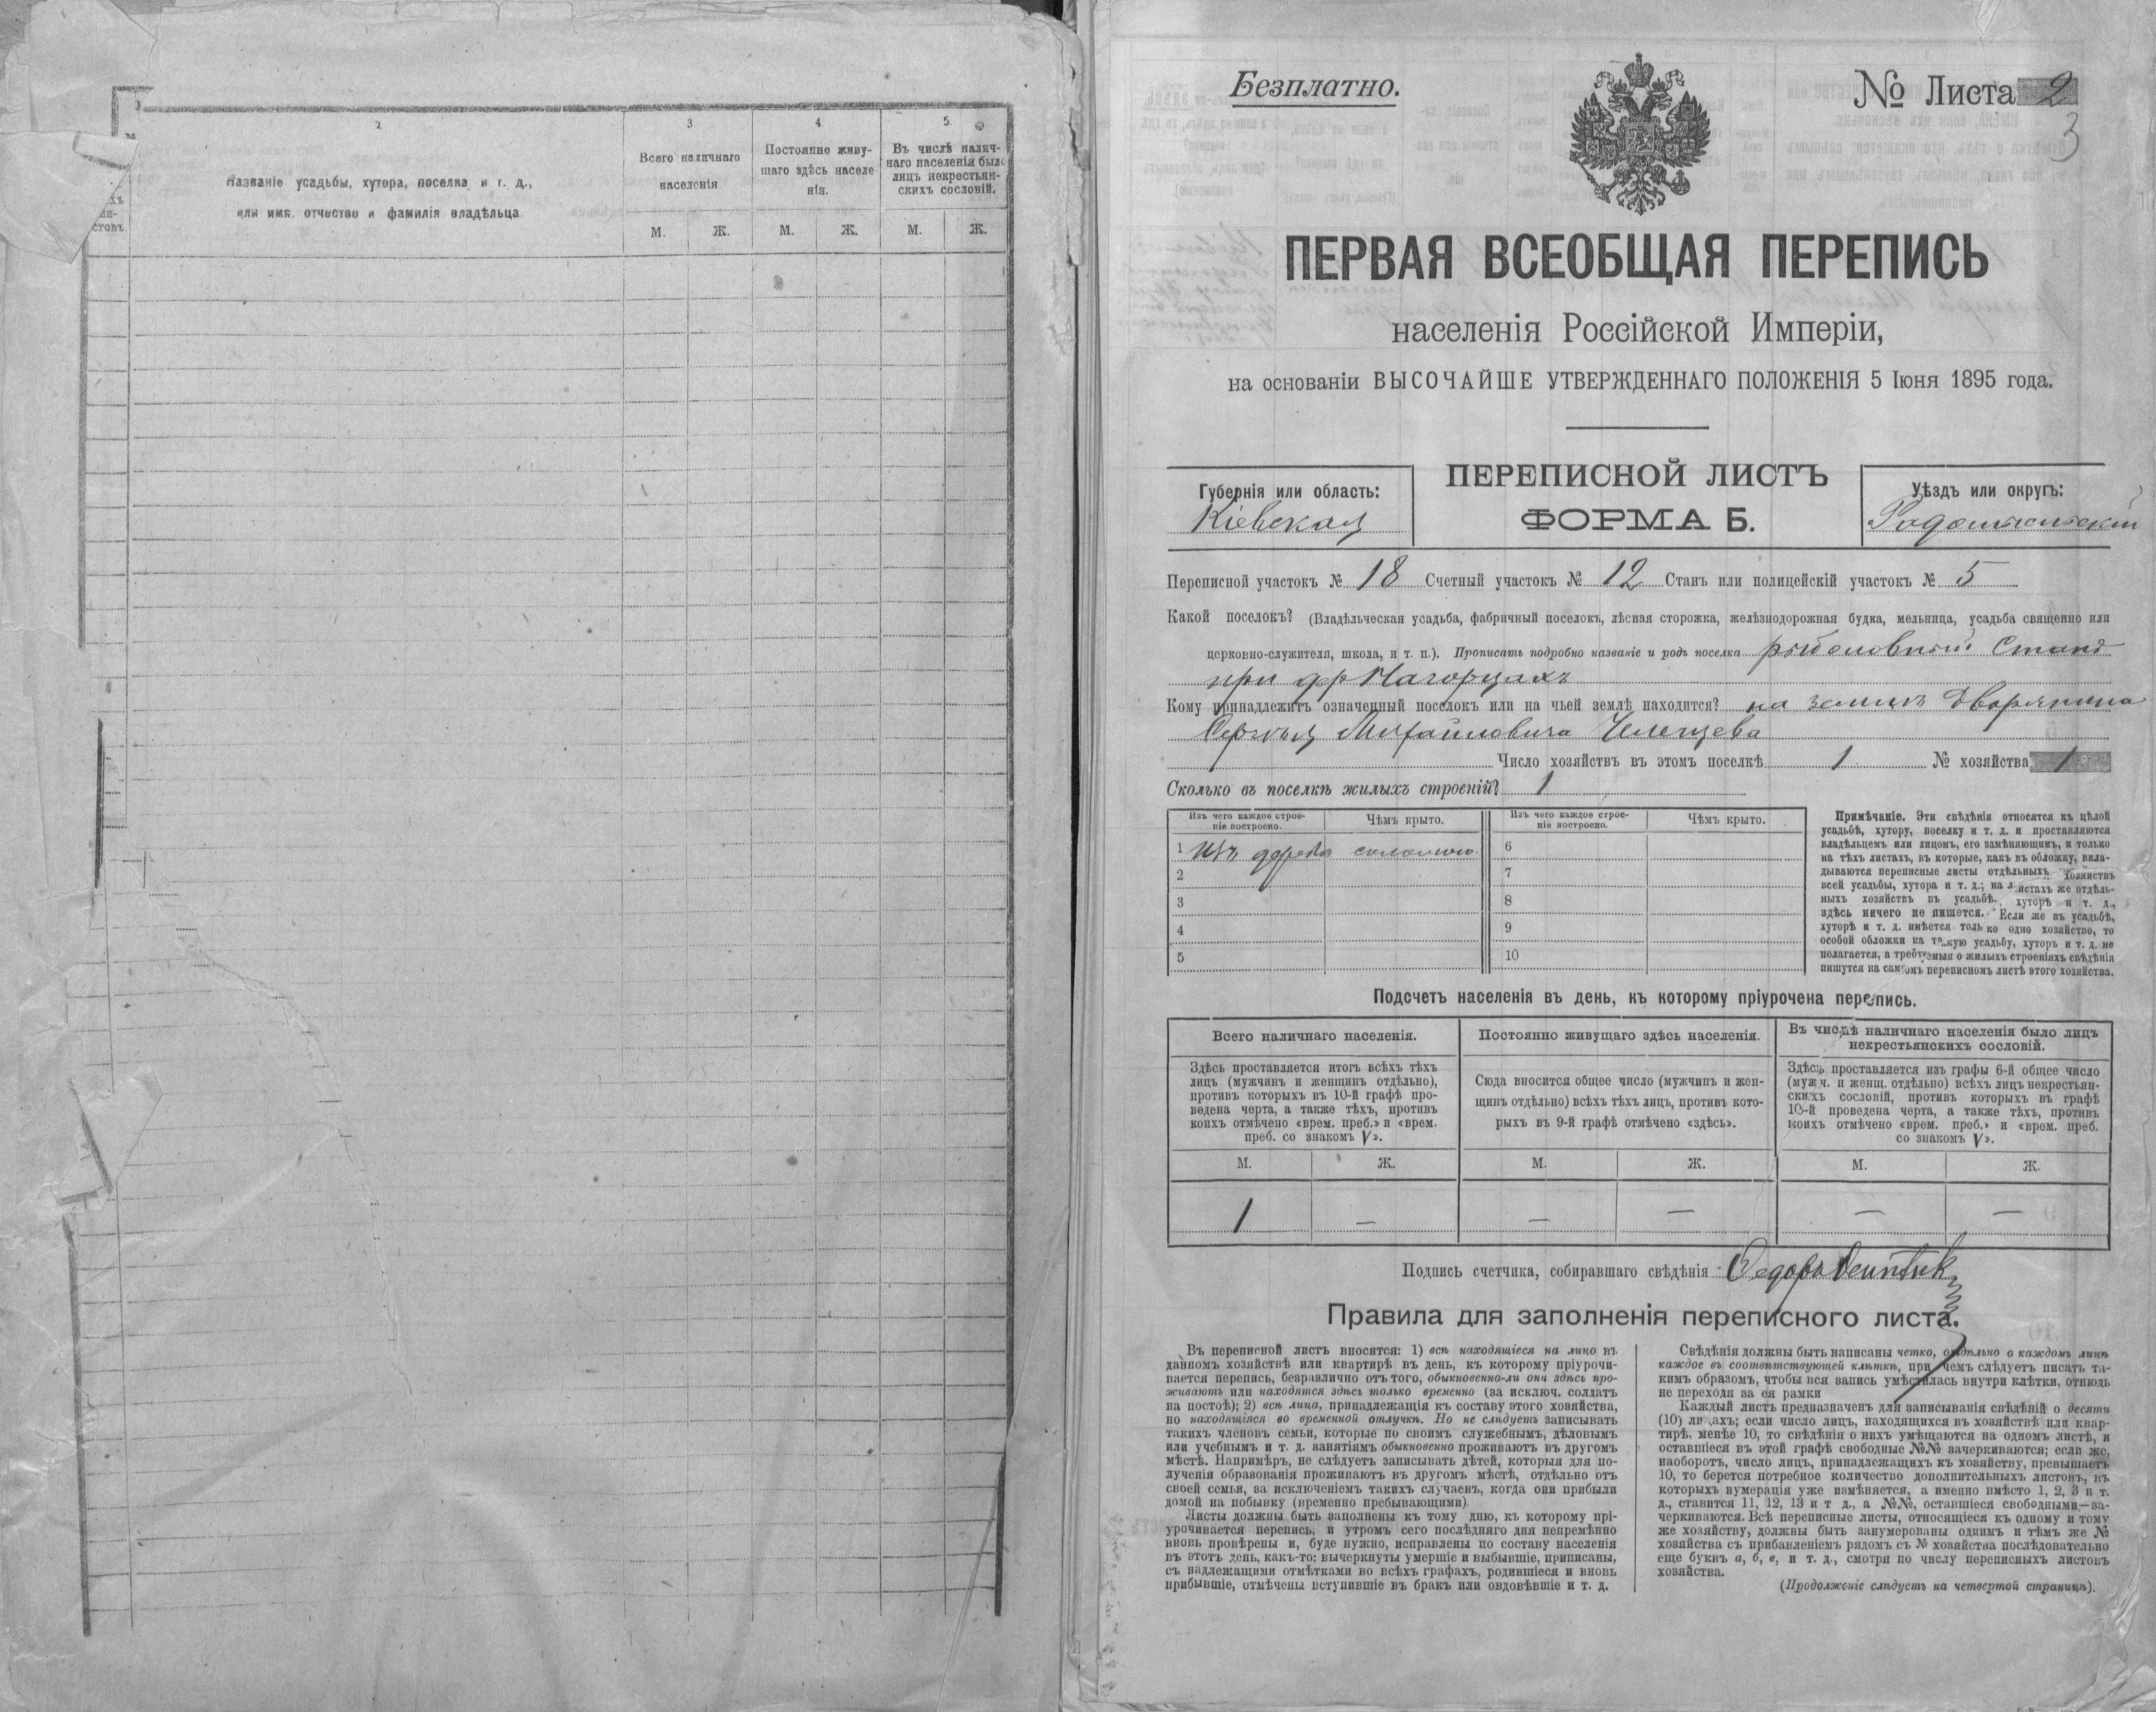 2
3
4
5
Названіе усадьбы, хутора, поселка и т. д.,
или имя, отчество и фамилія владѣльца
Всего наличнаго
населенія
Постоянно живу-
щаго здѣсь населе
нія.
Въ числѣ налич-
наго населенія было
лицъ некрестьян-
скихъ сословій.
М. Ж. М. Ж. М. Ж.
Безплатно.
№ Листа 2
3
ПЕРВАЯ ВСЕОБЩАЯ ПЕРЕПИСЬ
населенія Россійской Имперіи,
на основаніи ВЫСОЧАЙШЕ УТВЕРЖДЕННАГО ПОЛОЖЕНІЯ 5 Іюня 1895 года.
Губернія или область:
Кіевская
ПЕРЕПИСНОЙ ЛИСТЪ
ФОРМА Б.
Уѣздъ или округъ:
Радомысльскій
Переписной участокъ № 18 Счетный участокъ № 12 Станъ или полицейскій участокъ № 5
Какой поселокъ? (Владѣльческая усадьба, фабричный поселокъ, лѣсная сторожка, желѣзнодорожная будка, мельница, усадьба священно или
церковно-служителя, школа, и т. п.). Прописать подробно названіе и родъ поселка рыболовный Станъ
при дер Нагорцахъ
Кому принадлежитъ означенный поселокъ или на чьей землѣ находится? на землѣ Дворянина
Сергѣя Михайловича
Число хозяйствъ въ этомъ поселкѣ 1 № хозяйства 1
Сколько въ поселкѣ жилыхъ строеній? 1
Изъ чего каждое строе-
ніе построено.
Чѣмъ крыто.
Изъ чего каждое строе-
ніе построено.
Чѣмъ крыто.
1 Изъ дерева соломою 6
2 7
3 8
4 9
5 10
Примѣчаніе. Эти свѣдѣнія относятся къ цѣлой
усадьбѣ, хутору, поселку и т. д. и проставляются
владѣльцемъ или лицомъ, его замѣняющимъ, и только
на тѣхъ листахъ, въ которые, какъ въ обложку, вкла-
дываются переписные листы отдѣльныхъ хозяйствъ
всей усадьбы, хутора и т. д.; на листахъ же отдѣль-
ныхъ хозяйствъ въ усадьбѣ, хуторѣ и т. д.,
здѣсь ничего не пишется. Если же въ усадьбѣ,
хуторѣ и т. д. имѣется только одно хозяйство, то
особой обложки на такую усадьбу, хуторъ и т. д. не
полагается, а требуемыя о жилыхъ строеніяхъ свѣдѣнія
пишутся на самомъ переписномъ листѣ этого хозяйства.
Подсчетъ населенія въ день, къ которому пріурочена перепись.
Всего наличнаго населенія.
Здѣсь проставляется итогъ всѣхъ тѣхъ
лицъ (мужчинъ и женщинъ отдѣльно),
противъ которыхъ въ 10-й графѣ про-
ведена черта, а также тѣхъ, противъ
коихъ отмѣчено «врем. преб.» и «врем.
преб. со знакомъ V».
Постоянно живущаго здѣсь населенія.
Сюда вносится общее число (мужчинъ и жен-
щинъ отдѣльно) всѣхъ тѣхъ лицъ, противъ кото-
рыхъ въ 9-й графѣ отмѣчено «здѣсь».
Въ числѣ наличнаго населенія было лицъ
некрестьянскихъ сословій.
Здѣсь проставляется изъ графы 6-й общее число
(мужч. и женщ. отдѣльно) всѣхъ лицъ некрестьян-
скихъ сословій, противъ которыхъ въ графѣ
10-й проведена черта, а также тѣхъ, противъ
коихъ отмѣчено «врем. преб.» и «врем. преб.
со знакомъ V».
М. Ж. М. Ж. М. Ж.
1 — — — — —
Подпись счетчика, собиравшаго свѣдѣнія Федоръ
Правила для заполненія переписного листа.
Въ переписной листъ вносятся: 1) всѣ находящіеся на лицо въ
данномъ хозяйствѣ или квартирѣ въ день, къ которому пріурочи-
вается перепись, безразлично отъ того, обыкновенно-ли они здѣсь про-
живаютъ или находятся здѣсь только временно (за исключ. солдатъ
на постоѣ); 2) всѣ лица, принадлежащія къ составу этого хозяйства,
но находящіяся во временной отлучкѣ. Но не слѣдуетъ записывать
такихъ членовъ семьи, которые по своимъ служебнымъ, дѣловымъ
или учебнымъ и т. д. занятіямъ обыкновенно проживаютъ въ другомъ
мѣстѣ. Напримѣръ, не слѣдуетъ записывать дѣтей, которыя для по-
лученія образованія проживаютъ въ другомъ мѣстѣ, отдѣльно отъ
своей семьи, за исключеніемъ такихъ случаевъ, когда они прибыли
домой на побывку (временно пребывающими)
Листы должны быть заполнены къ тому дню, къ которому прі-
урочивается перепись, и утромъ сего послѣдняго дня непремѣнно
вновь провѣрены и, буде нужно, исправлены по составу населенія
въ этотъ день, какъ-то: вычеркнуты умершіе и выбывшіе, приписаны,
съ надлежащими отмѣтками во всѣхъ графахъ, родившіеся и вновь
прибывшіе, отмѣчены вступившіе въ бракъ или овдовѣвшіе и т. д.
Свѣдѣнія должны быть написаны четко, отдѣльно о каждомъ лицѣ
каждое въ соотвѣтствующей клѣткѣ, при чемъ слѣдуетъ писать та-
кимъ образомъ, чтобы вся запись умѣстилась внутри клѣтки, отнюдь
не переходя за ея рамки
Каждый листъ предназначенъ для записыванія свѣдѣній о десяти
(10) лицахъ; если число лицъ, находящихся въ хозяйствѣ или квар-
тирѣ, менѣе 10, то свѣдѣнія о нихъ умѣщаются на одномъ листѣ, и
оставшіеся въ этой графѣ свободные №№ зачеркиваются; если же,
наоборотъ, число лицъ, принадлежащихъ къ хозяйству, превышаетъ
10, то берется потребное количество дополнительныхъ листовъ, въ
которыхъ нумерація уже измѣняется, а именно вмѣсто 1, 2, 3 и т.
д., ставится 11, 12, 13 и т д., а №№, оставшіеся свободными—за-
черкиваются. Всѣ переписные листы, относящіеся къ одному и тому
же хозяйству, должны быть занумерованы однимъ и тѣмъ же №
хозяйства съ прибавленіемъ рядомъ съ № хозяйства послѣдовательно
еще буквъ а, б, в, и т. д., смотря по числу переписныхъ листовъ
хозяйства.
(Продолженіе слѣдуетъ на четвертой страницѣ).